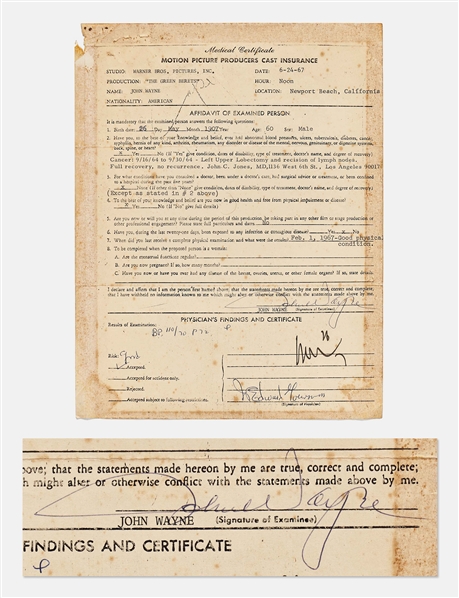 Medical Certificate
MOTION PICTURE PRODUCERS CAST INSURANCE
STUDIO: WARNER BROS. PICTURES, INC. DATE: 6-24-67
PRODUCTION: "THE GREEN BERETS" HOUR: Noon
NAME: JOHN WAYNE LOCATION: Newport Beach, California
NATIONALITY: AMERICAN
AFFIDAVIT OF EXAMINED PERSON
It is mandatory that the examined person answers the following questions:
1. Birth date: 26 Day May Month 1907 Year Age: 60 Sex: Male
2. Have you, to the best of your knowledge and belief, ever had abnormal blood pressure, ulcers, tuberculosis, diabetes, cancer,
epilepsy, hernia of any kind, arthritis, rheumatism, any disorder or disease of the mental, nervous, genitourinary, or digestive systems,
back, spine, or heart?
X Yes (If "Yes" give condition, dates of disability, type of treatment, doctor's name, and degree of recovery)
Cancer: 9/16/64 to 9/30/64 - Left Upper Lobectomy and recision of lymph nodes.
Full recovery, no recurrence, John C. Jones, MD, 1136 West 6th St., Los Angeles 90017
3. For what condition have you consulted a doctor, been under a doctor's care, had surgical advice or treatment, or been confined
to a hospital during the past five years?
X None (If other than "None" give condition, dates of disability, type of treatment, doctor's name, and degree of recovery)
(Except as stated in # 2 above)
4. To the best of your knowledge and belief are you now in good health and free from physical impairment or disease?
X Yes No (If "No" give full details)
5. Are you now or will you at any time during the period of this production, be taking part in any other film or stage production or
other professional engagement? Please give full particulars and dates NO
6. Have you, during the last twenty-one days, been exposed to any infection or contagious disease? Yes X No
7. When did you last receive a complete physical examination and what were the results? Feb. 1, 1967-Good physical
condition.
8. To be completed when the proposed person is a woman:
A. Are the menstrual functions regular?
B. Are you now pregnant? If so, how many months?
C. Have you now or have you ever had any disease of the breast, ovaries, uterus, or other female organs? If so, state details.
I declare and affirm that I am the person first named above; that the statements made hereon by me are true, correct and complete;
that I have withheld no information known to me which might alter or otherwise conflict with the statements made above by me.
JOHN WAYNE (Signature of Examinee)
PHYSICIAN'S FINDINGS AND CERTIFICATE
Results of Examination:
BP. 110/70 P. 72
Risk: Good
Accepted.
Accepted for accident only.
Rejected.
Accepted subject to following restrictions.
(Signature of Physician)
bove; that the statements made hereon by me are true, correct and complete;
h might alter or otherwise conflict with the statements made above by me.
JOHN WAYNE (Signature of Examinee)
FINDINGS AND CERTIFICATE